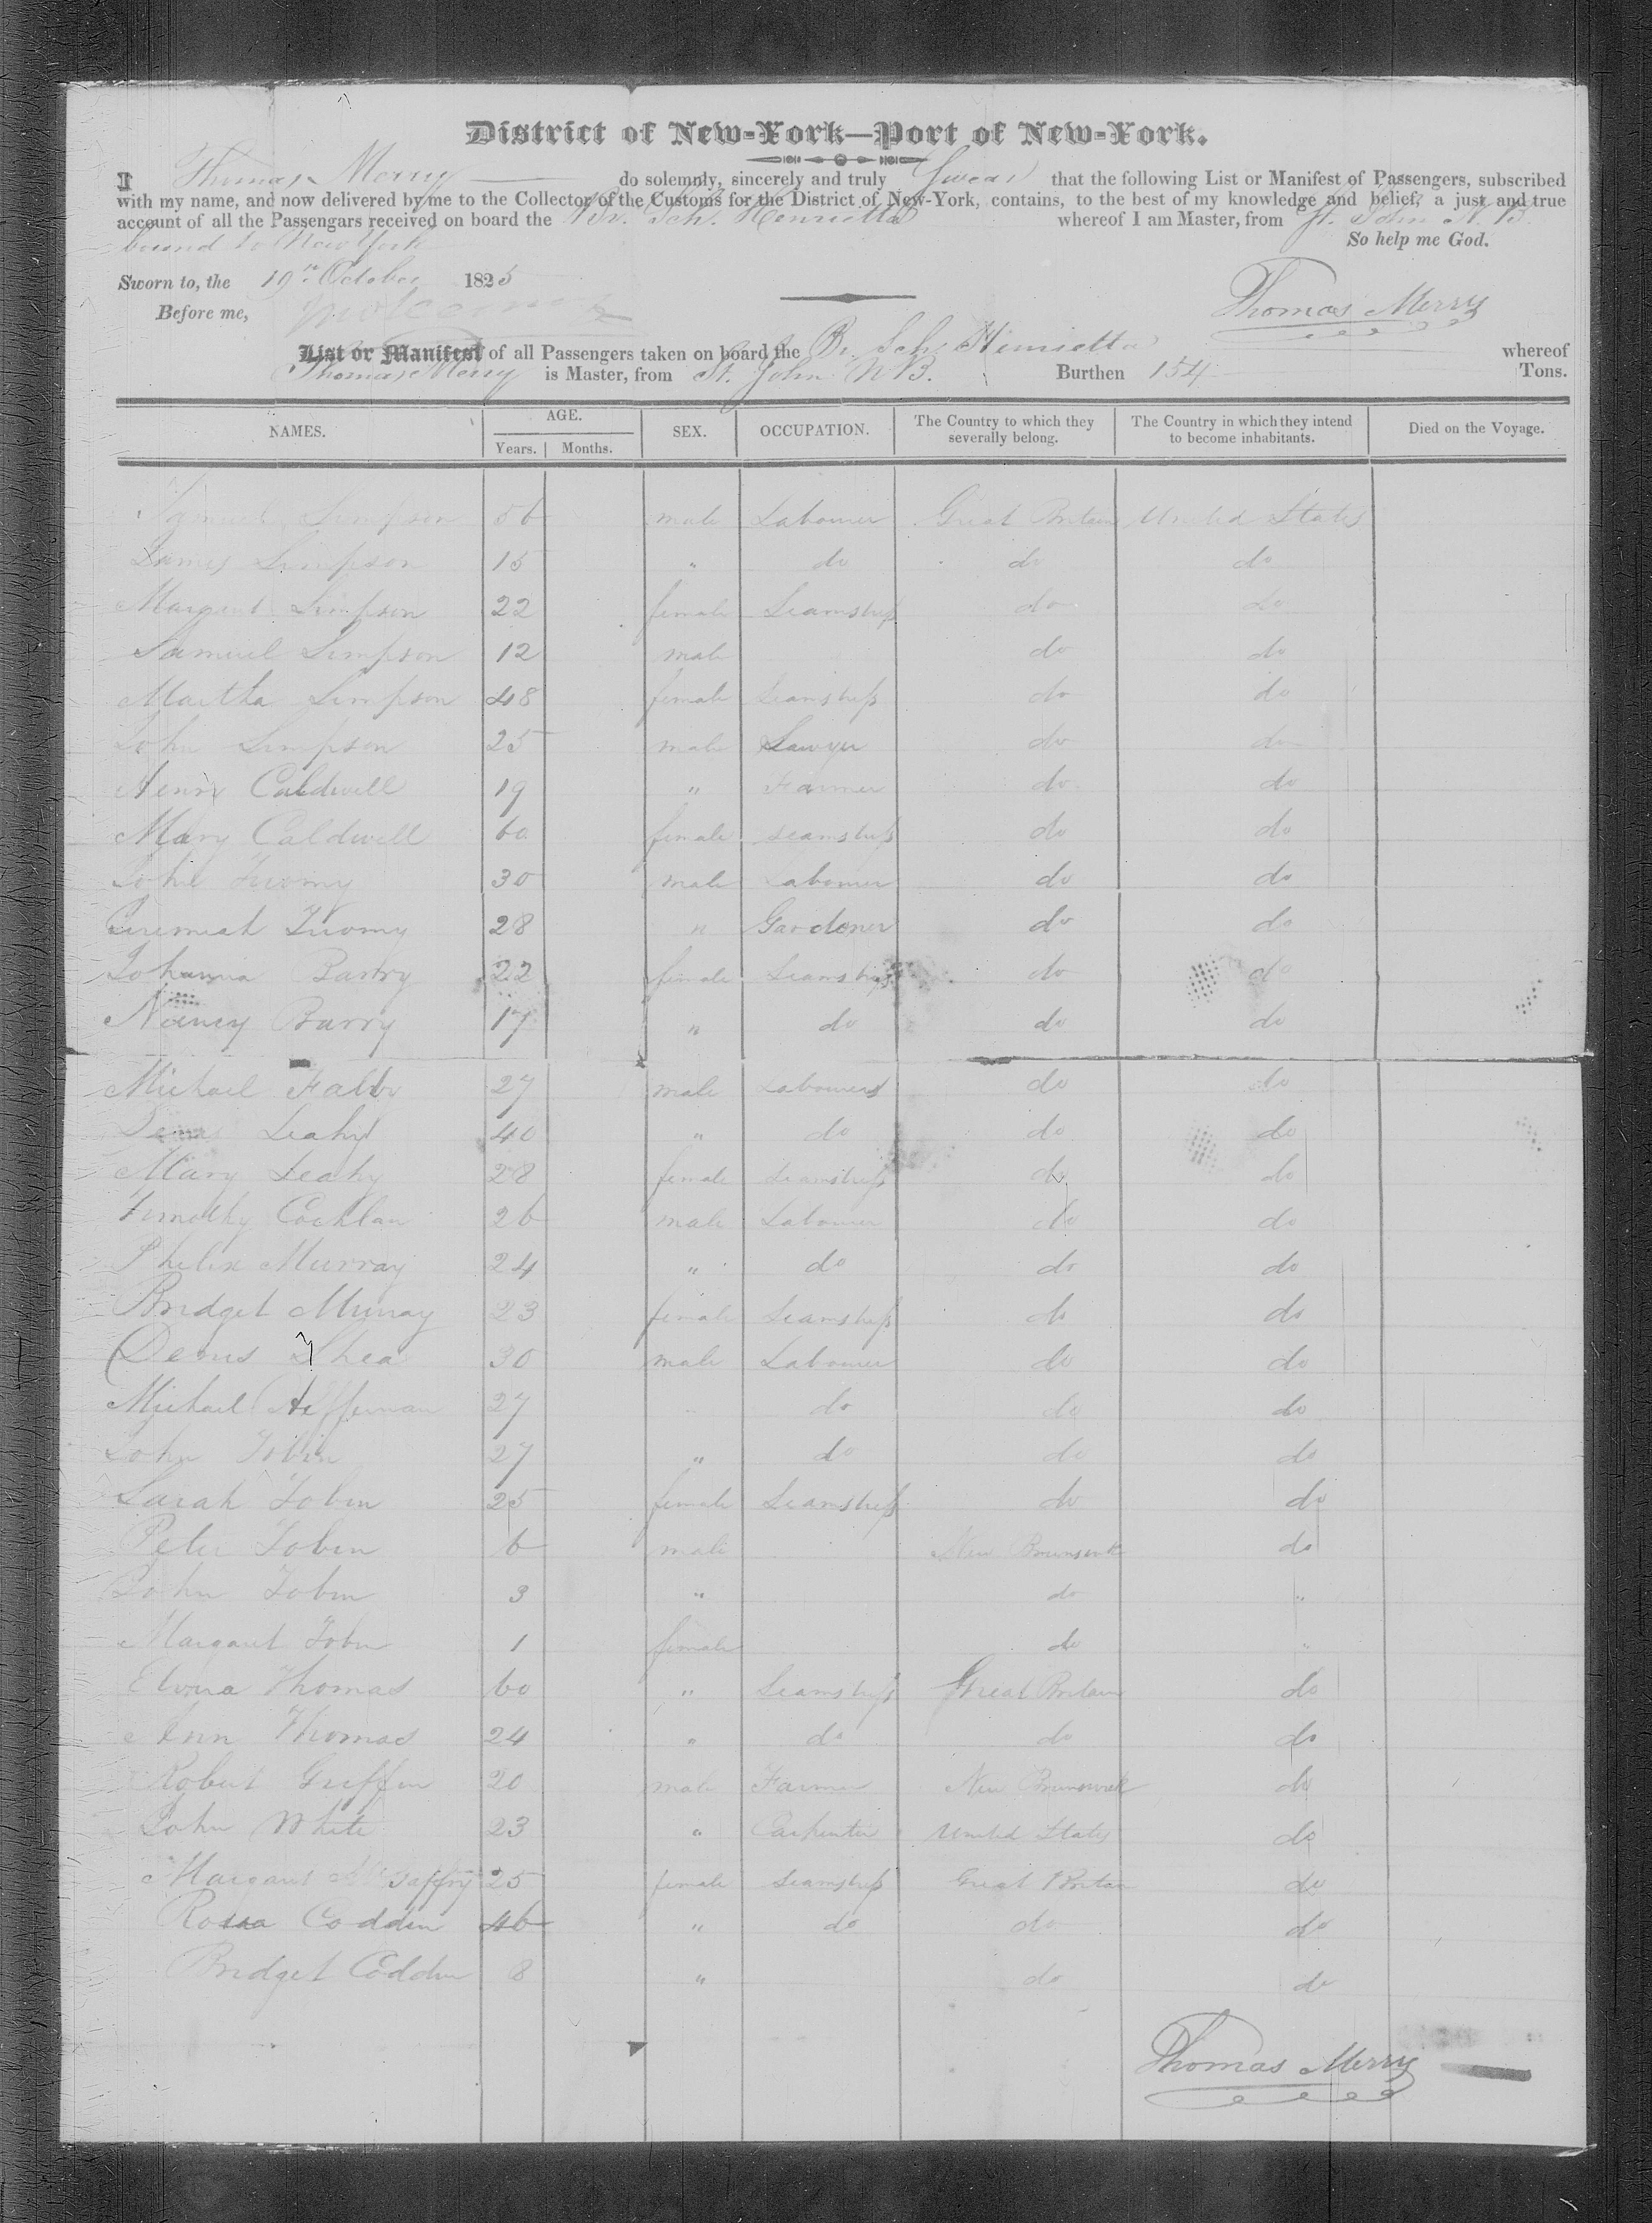 District of New-York—Port of New-York.
I Thomas Merry do solemnly, sincerely and truly Swear that the following List or Manifest of Passengers, subscribed
with my name, and now delivered by me to the Collector of the Customs for the District of New-York, contains, to the best of my knowledge and belief, a just and true
account of all the Passengars received on board the Br. Sch. Henrietta whereof I am Master, from St. John N.B.
bound to New York So help me God.
Sworn to, the 19th October 1825
Before me, Thomas Merry
List or Manifest of all Passengers taken on board the Br. Sch. Henrietta whereof
Thomas Merry is Master, from St. John N B. Burthen 154 Tons.
NAMES. AGE. Years. Months. SEX. OCCUPATION. The Country to which they severally belong. The Country in which they intend to become inhabitants. Died on the Voyage.
Samuel Simpson 56 male Labourer Great Britain United States
James Simpson 15 " do do do
Margaret Simpson 22 female Seamstress do do
Samuel Simpson 12 male do do
Martha Simpson 48 female Seamstress do do
John Simpson 25 male Sawyer do do
Henry Caldwell 19 " Farmer do do
Mary Caldwell 60 female seamstress do do
John Twomy 30 male Labourer do do
Jeremiah Twomy 28 " Gardener do do
Johanna Barry 22 female Seamstress do do
Nancy Barry 17 " do do do
Michael 27 male Labourer do do
Denis Leahy 40 " do do do
Mary Leahy 28 female seamstress do do
Timothy Coghlan 26 male Labourer do do
Phelix Murray 24 " do do do
Bridget Murray 23 female Seamstress do do
Denis Shea 30 male Labourer do do
Michael Heffernan 27 do do do
John Tobin 27 " do do do
Sarah Tobin 25 female Seamstress do do
Peter Tobin 6 male New Brunswick do
John Tobin 3 " do "
Margaret Tobin 1 female do "
Thomas 60 " Seamstress Great Britain do
Ann Thomas 24 " do do do
Robert Griffin 20 male Farmer New Brunswick do
John White 23 " Carpenter United States do
Margaret McGaffry 25 female Seamstress Great Britain do
Rosa Codden 46 " do do do
Bridget Codden 8 " do do
Thomas Merry